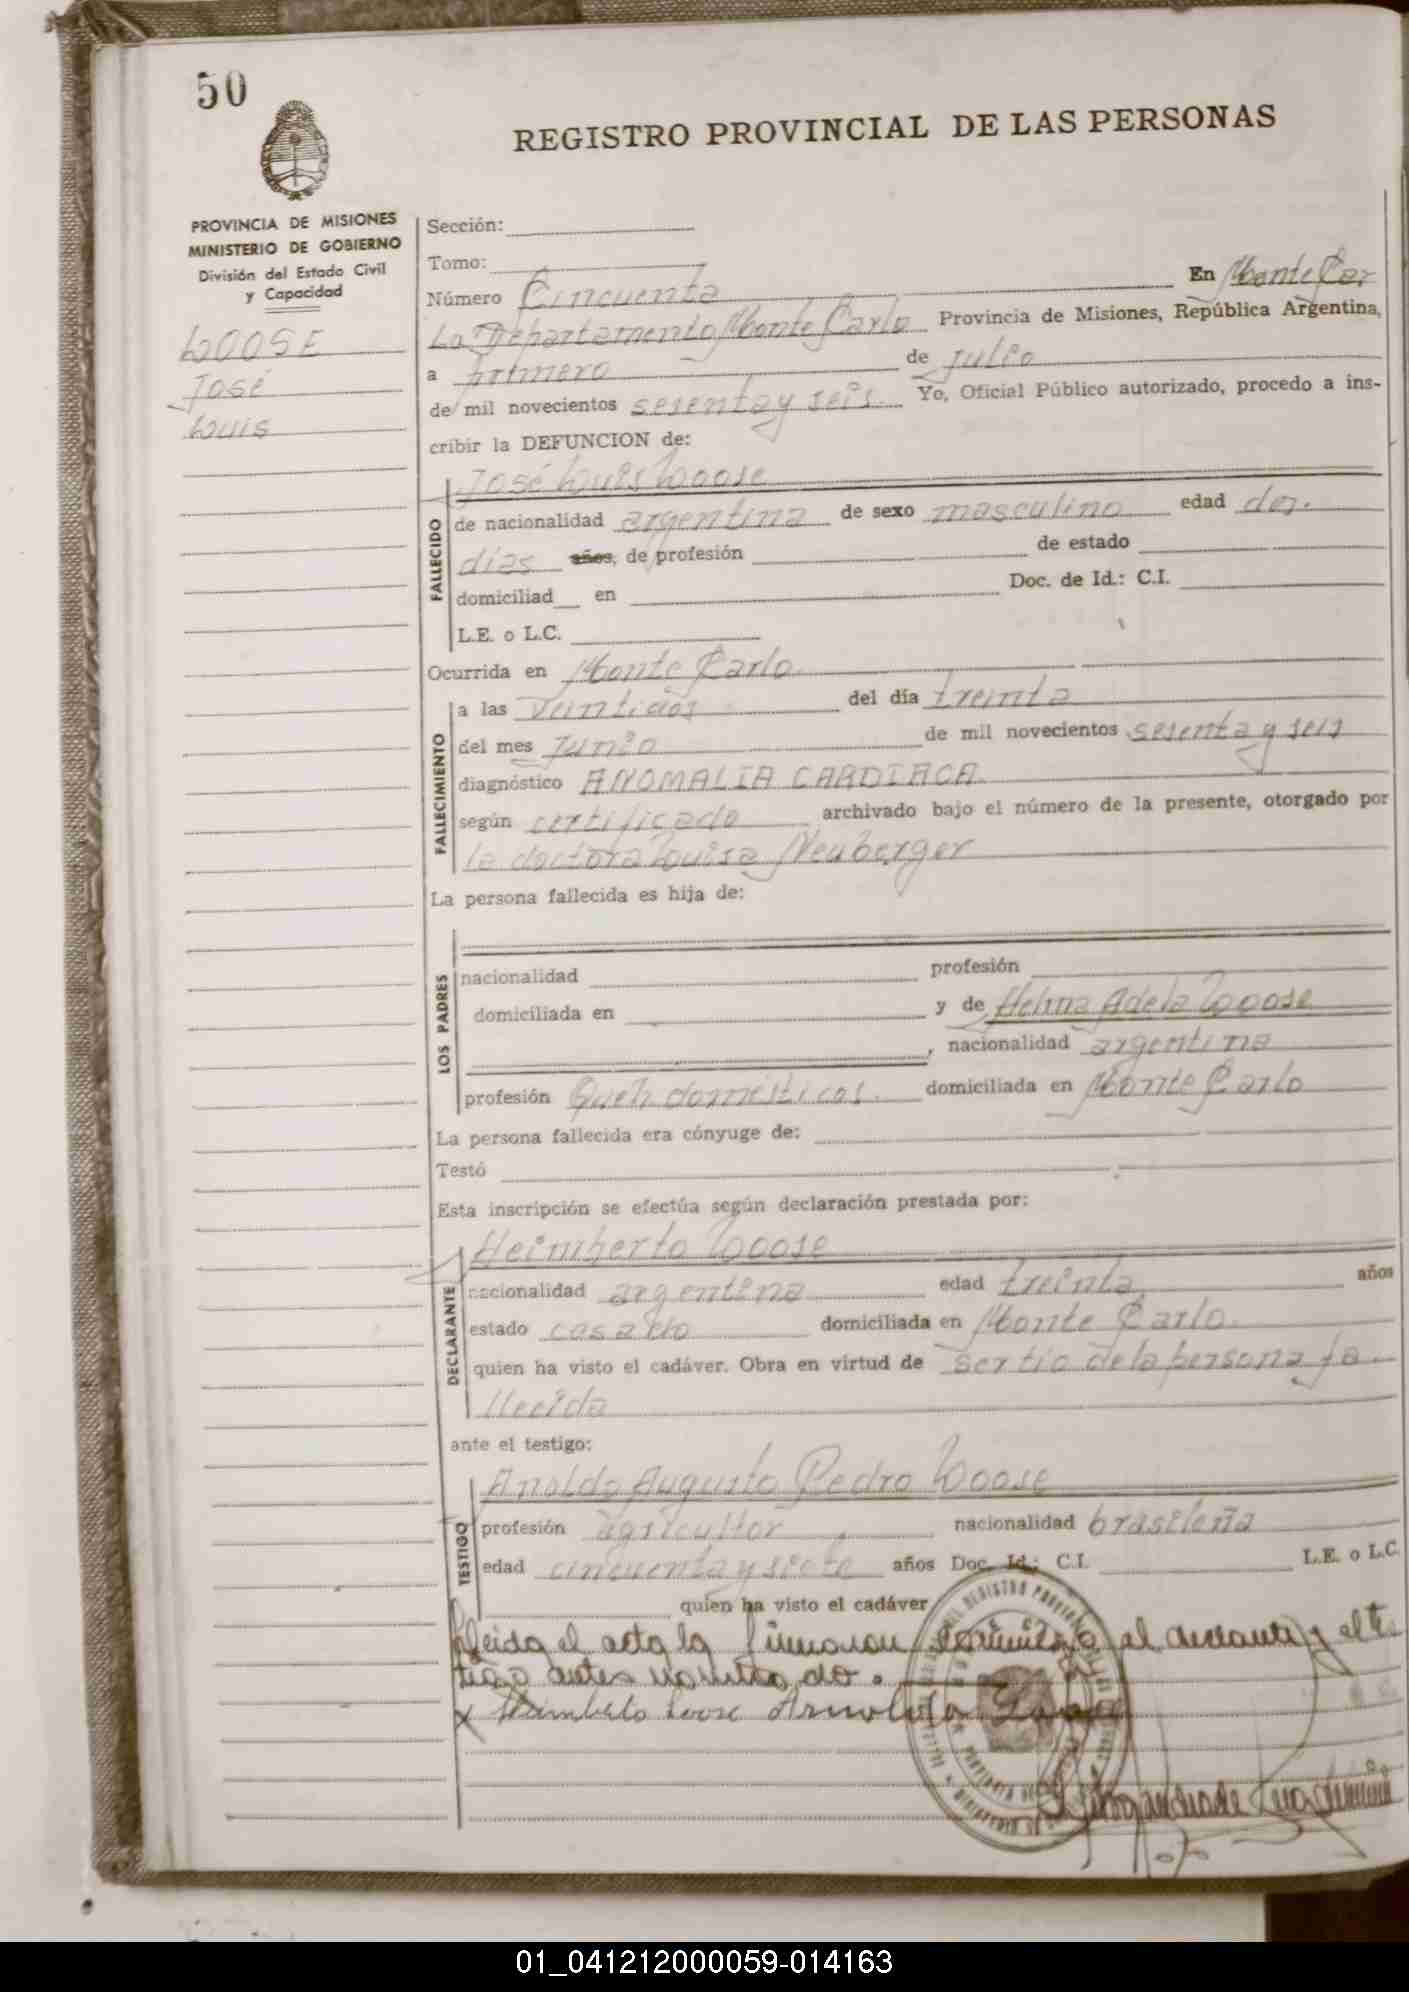 50
REGISTRO PROVINCIAL DE LAS PERSONAS
PROVINCIA DE MISIONES
MINISTERIO DE GOBIERNO
División del Estado Civil
y Capacidad
LOOSE
José
Luis
Sección:
Tomo:
Número Cincuenta En Monte Car
lo Departamento Monte Carlo Provincia de Misiones, República Argentina,
a primero de julio
de mil novecientos sesenta y seis. Yo, Oficial Público autorizado, procedo a ins-
cribir la DEFUNCION de:
José Luis Loose
FALLECIDO
de nacionalidad argentina de sexo masculino edad dos.
días años, de profesión de estado
domiciliad en Doc. de Id.: C.I.
L.E. o L.C.
Ocurrida en Monte Carlo.
FALLECIMIENTO
a las veintidos del día treinta
del mes Junio de mil novecientos sesenta y seis
diagnóstico ANOMALIA CARDIACA.
según certificado archivado bajo el número de la presente, otorgado por
la doctora Luisa Neuberger
La persona fallecida es hija de:
LOS PADRES
nacionalidad profesión
domiciliada en y de Helma Adela Loose
, nacionalidad argentina
profesión Queh. domésticos. domiciliada en Monte Carlo
La persona fallecida era cónyuge de:
Testó
Esta inscripción se efectúa según declaración prestada por:
Heimberto Loose
DECLARANTE
nacionalidad argentina edad treinta años
estado casado domiciliada en Monte Carlo.
quien ha visto el cadáver. Obra en virtud de ser tio de la persona fa
llecida
ante el testigo:
Anoldo Augusto Pedro Loose
TESTIGO
profesión agricultor nacionalidad brasileña
edad cincuenta y siete años Doc. Id.: C.I. L.E. o L.C.
quien ha visto el cadáver
Leida el acta la firmaron conmigo el declarante y el tes
tigo antes nombrado.
x Heimberto Loose Arnoldo Loose
01_041212000059-014163